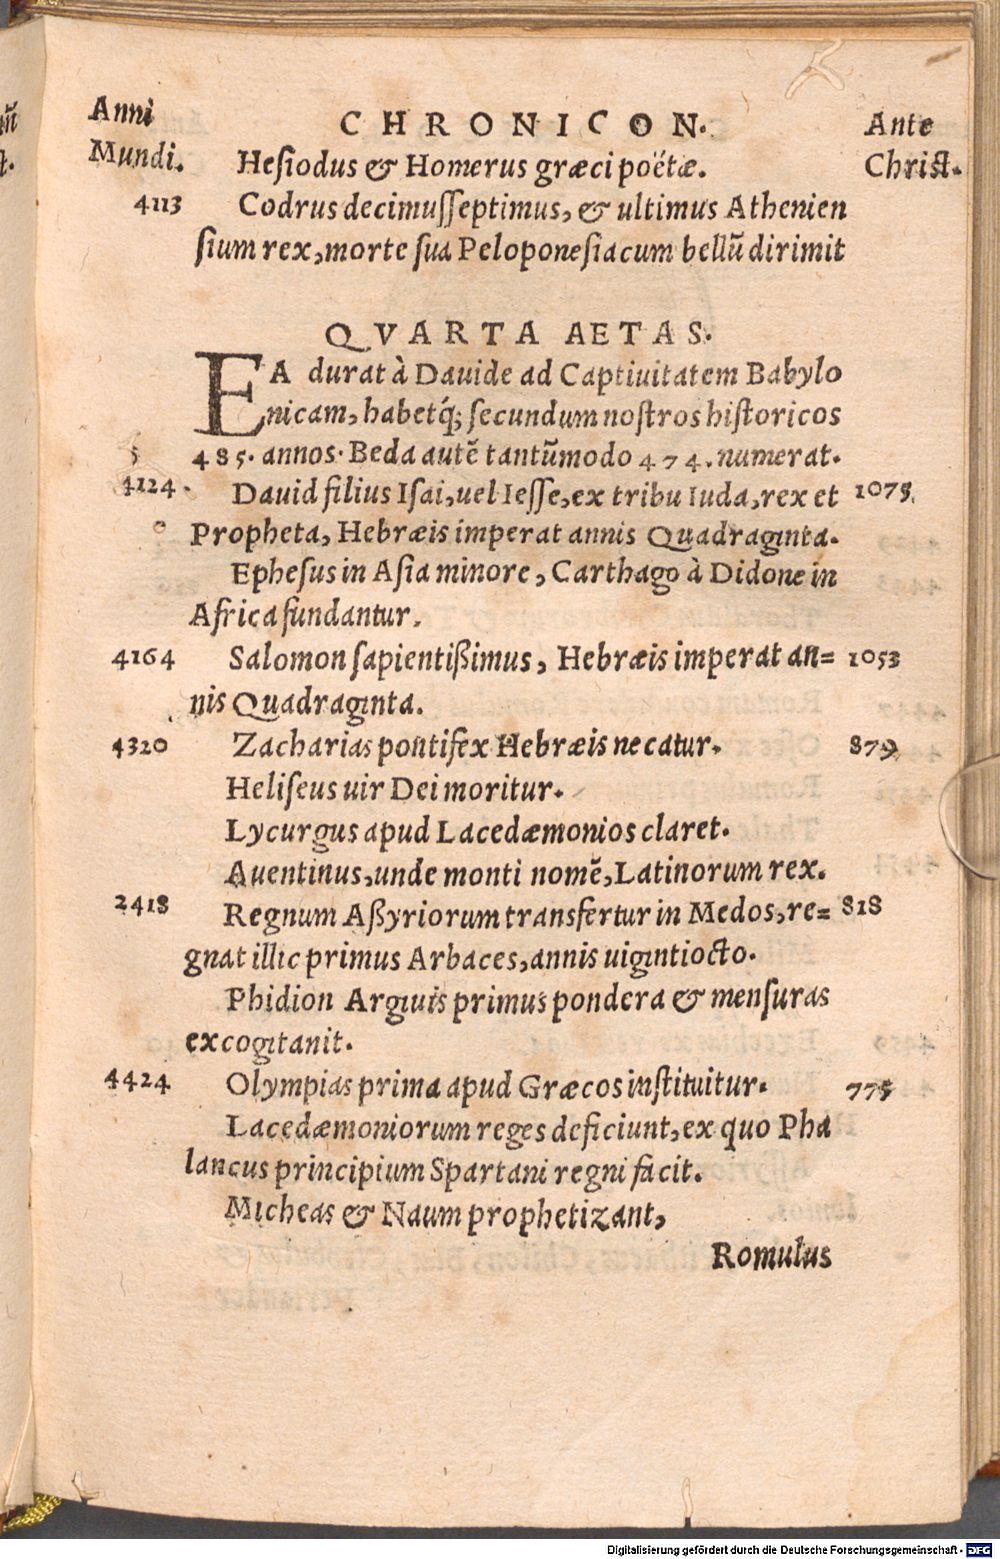 Anni CHRONICON. Ante
Mundi. Hesiodus & Homerus græci poëtæ. Christ.
4113 Codrus decimusſeptimus, & ultimus Athenien
ſium rex, morte ſua Peloponeſiacum bellũ dirimit
QVARTA AETAS.
EA durat à Dauide ad Captiuitatem Babylo
nicam, habetq́; ſecundum noſtros hiſtoricos
485. annos. Beda autẽ tantũmodo 474. numerat.
4124. Dauid filius Iſai, uel Ieſſe, ex tribu Iuda, rex et 1075.
Propheta, Hebræis imperat annis Quadraginta.
Epheſus in Aſia minore, Carthago à Didone in
Africa fundantur.
4164 Salomon ſapientißimus, Hebræis imperat an= 1053
nis Quadraginta.
4320 Zacharias pontifex Hebræis necatur. 879
Heliſeus uir Dei moritur.
Lycurgus apud Lacedæmonios claret.
Auentinus, unde monti nomẽ, Latinorum rex.
2418 Regnum Aßyriorum transfertur in Medos, re= 818
gnat illic primus Arbaces, annis uigintiocto.
Phidion Argiuis primus pondera & menſuras
excogitanit.
4424 Olympias prima apud Græcos inſtituitur. 775
Lacedæmoniorum reges deficiunt, ex quo Pha
lancus principium Spartani regni facit.
Micheas & Naum prophetizant,
Romulus
Digitalisierung gefördert durch die Deutsche Forschungsgemeinschaft - DFG